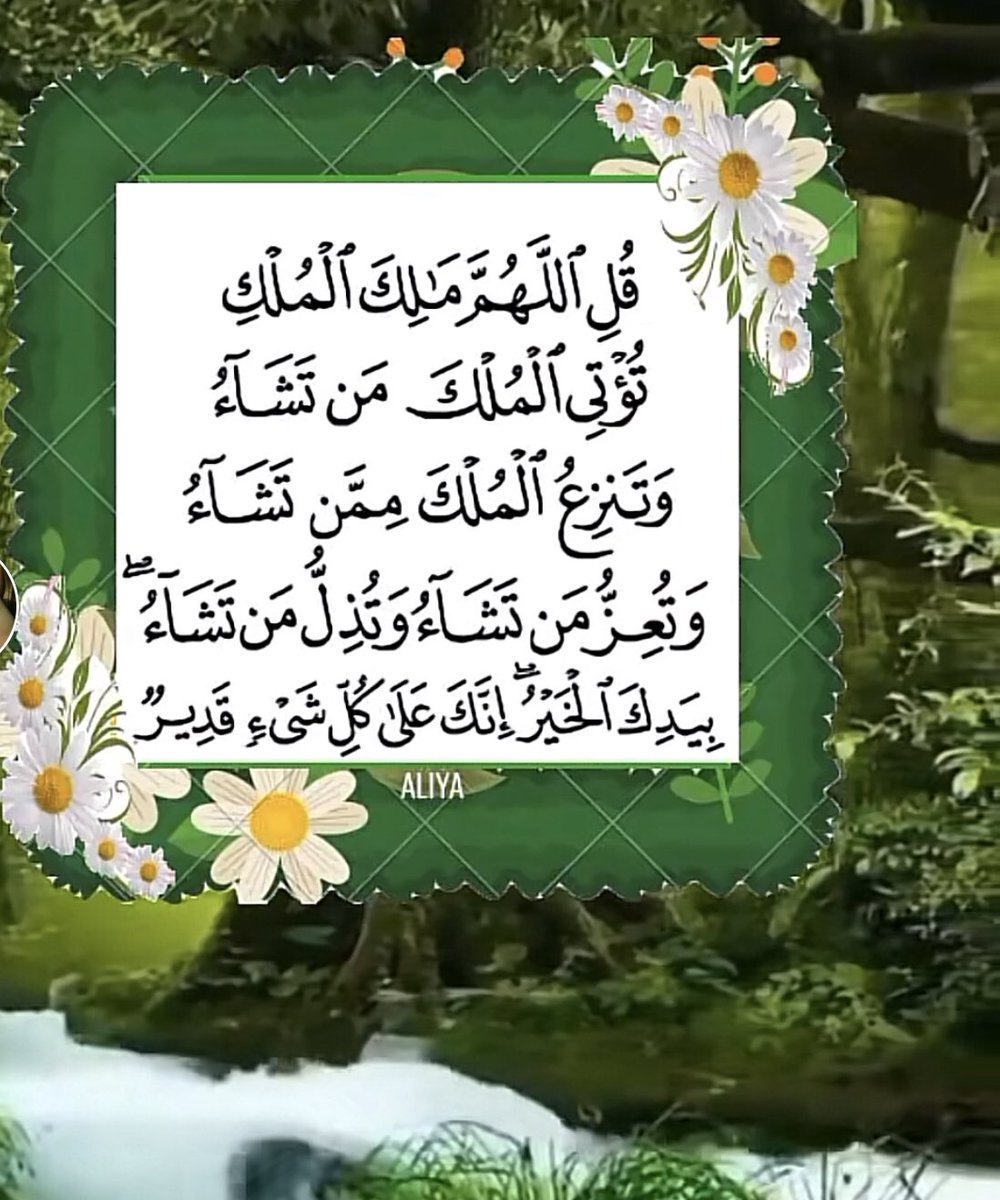 قُلِ ٱللَّهُمَّ مَـٰلِكَ ٱلْمُلْكِ
تُؤْتِى ٱلْمُلْكَ مَن تَشَآءُ
وَتَنزِعُ ٱلْمُلْكَ مِمَّن تَشَآءُ
وَتُعِزُّ مَن تَشَآءُ وَتُذِلُّ مَن تَشَآءُ ۖ
بِيَدِكَ ٱلْخَيْرُ ۖ إِنَّكَ عَلَىٰ كُلِّ شَىْءٍ قَدِيرٌ
ALIYA